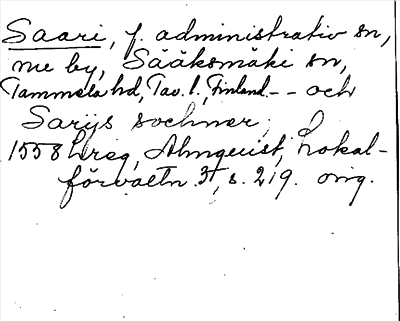 Saari, f. administrativ sn,
nu by, Sääksmäki sn,
Tammela hd, Tav. l., Finland. - - och
Sarijs sochner,
1558 Lreg, Almquist, Lokal-
förvaltn. 3, s. 219. orig.